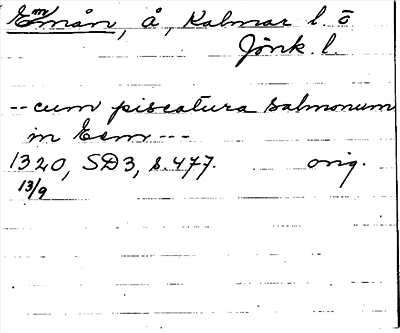 Emån, å, Kalmar l. o
Jönk. l.
-- cum piscatura salmonum
in Esm ---
1320, SD3, s. 477. orig.
13/9